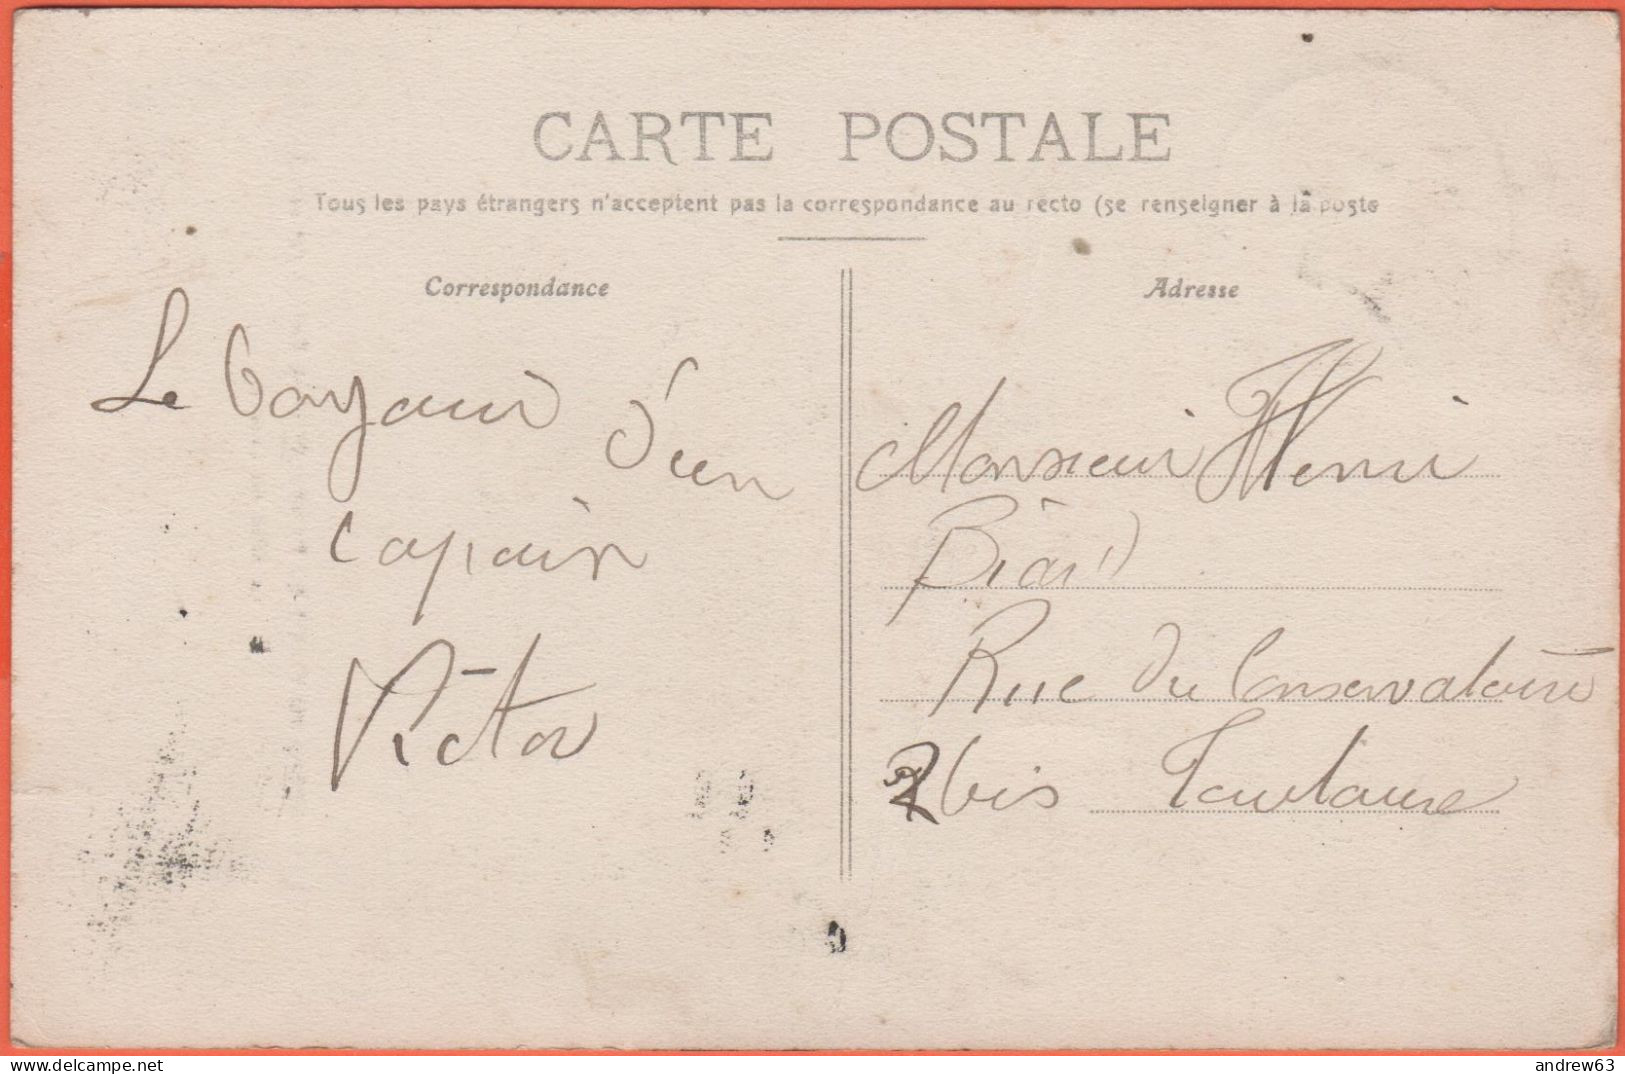 CARTE POSTALE
Tous les pays étrangers n'acceptent pas la correspondance au recto (se renseigner à la poste
Correspondance
Le bonjour
d'un
copain
Victor
Adresse
Monsieur Henri
Biard
Rue du Conservatoire
bis Toulouse
andrew63